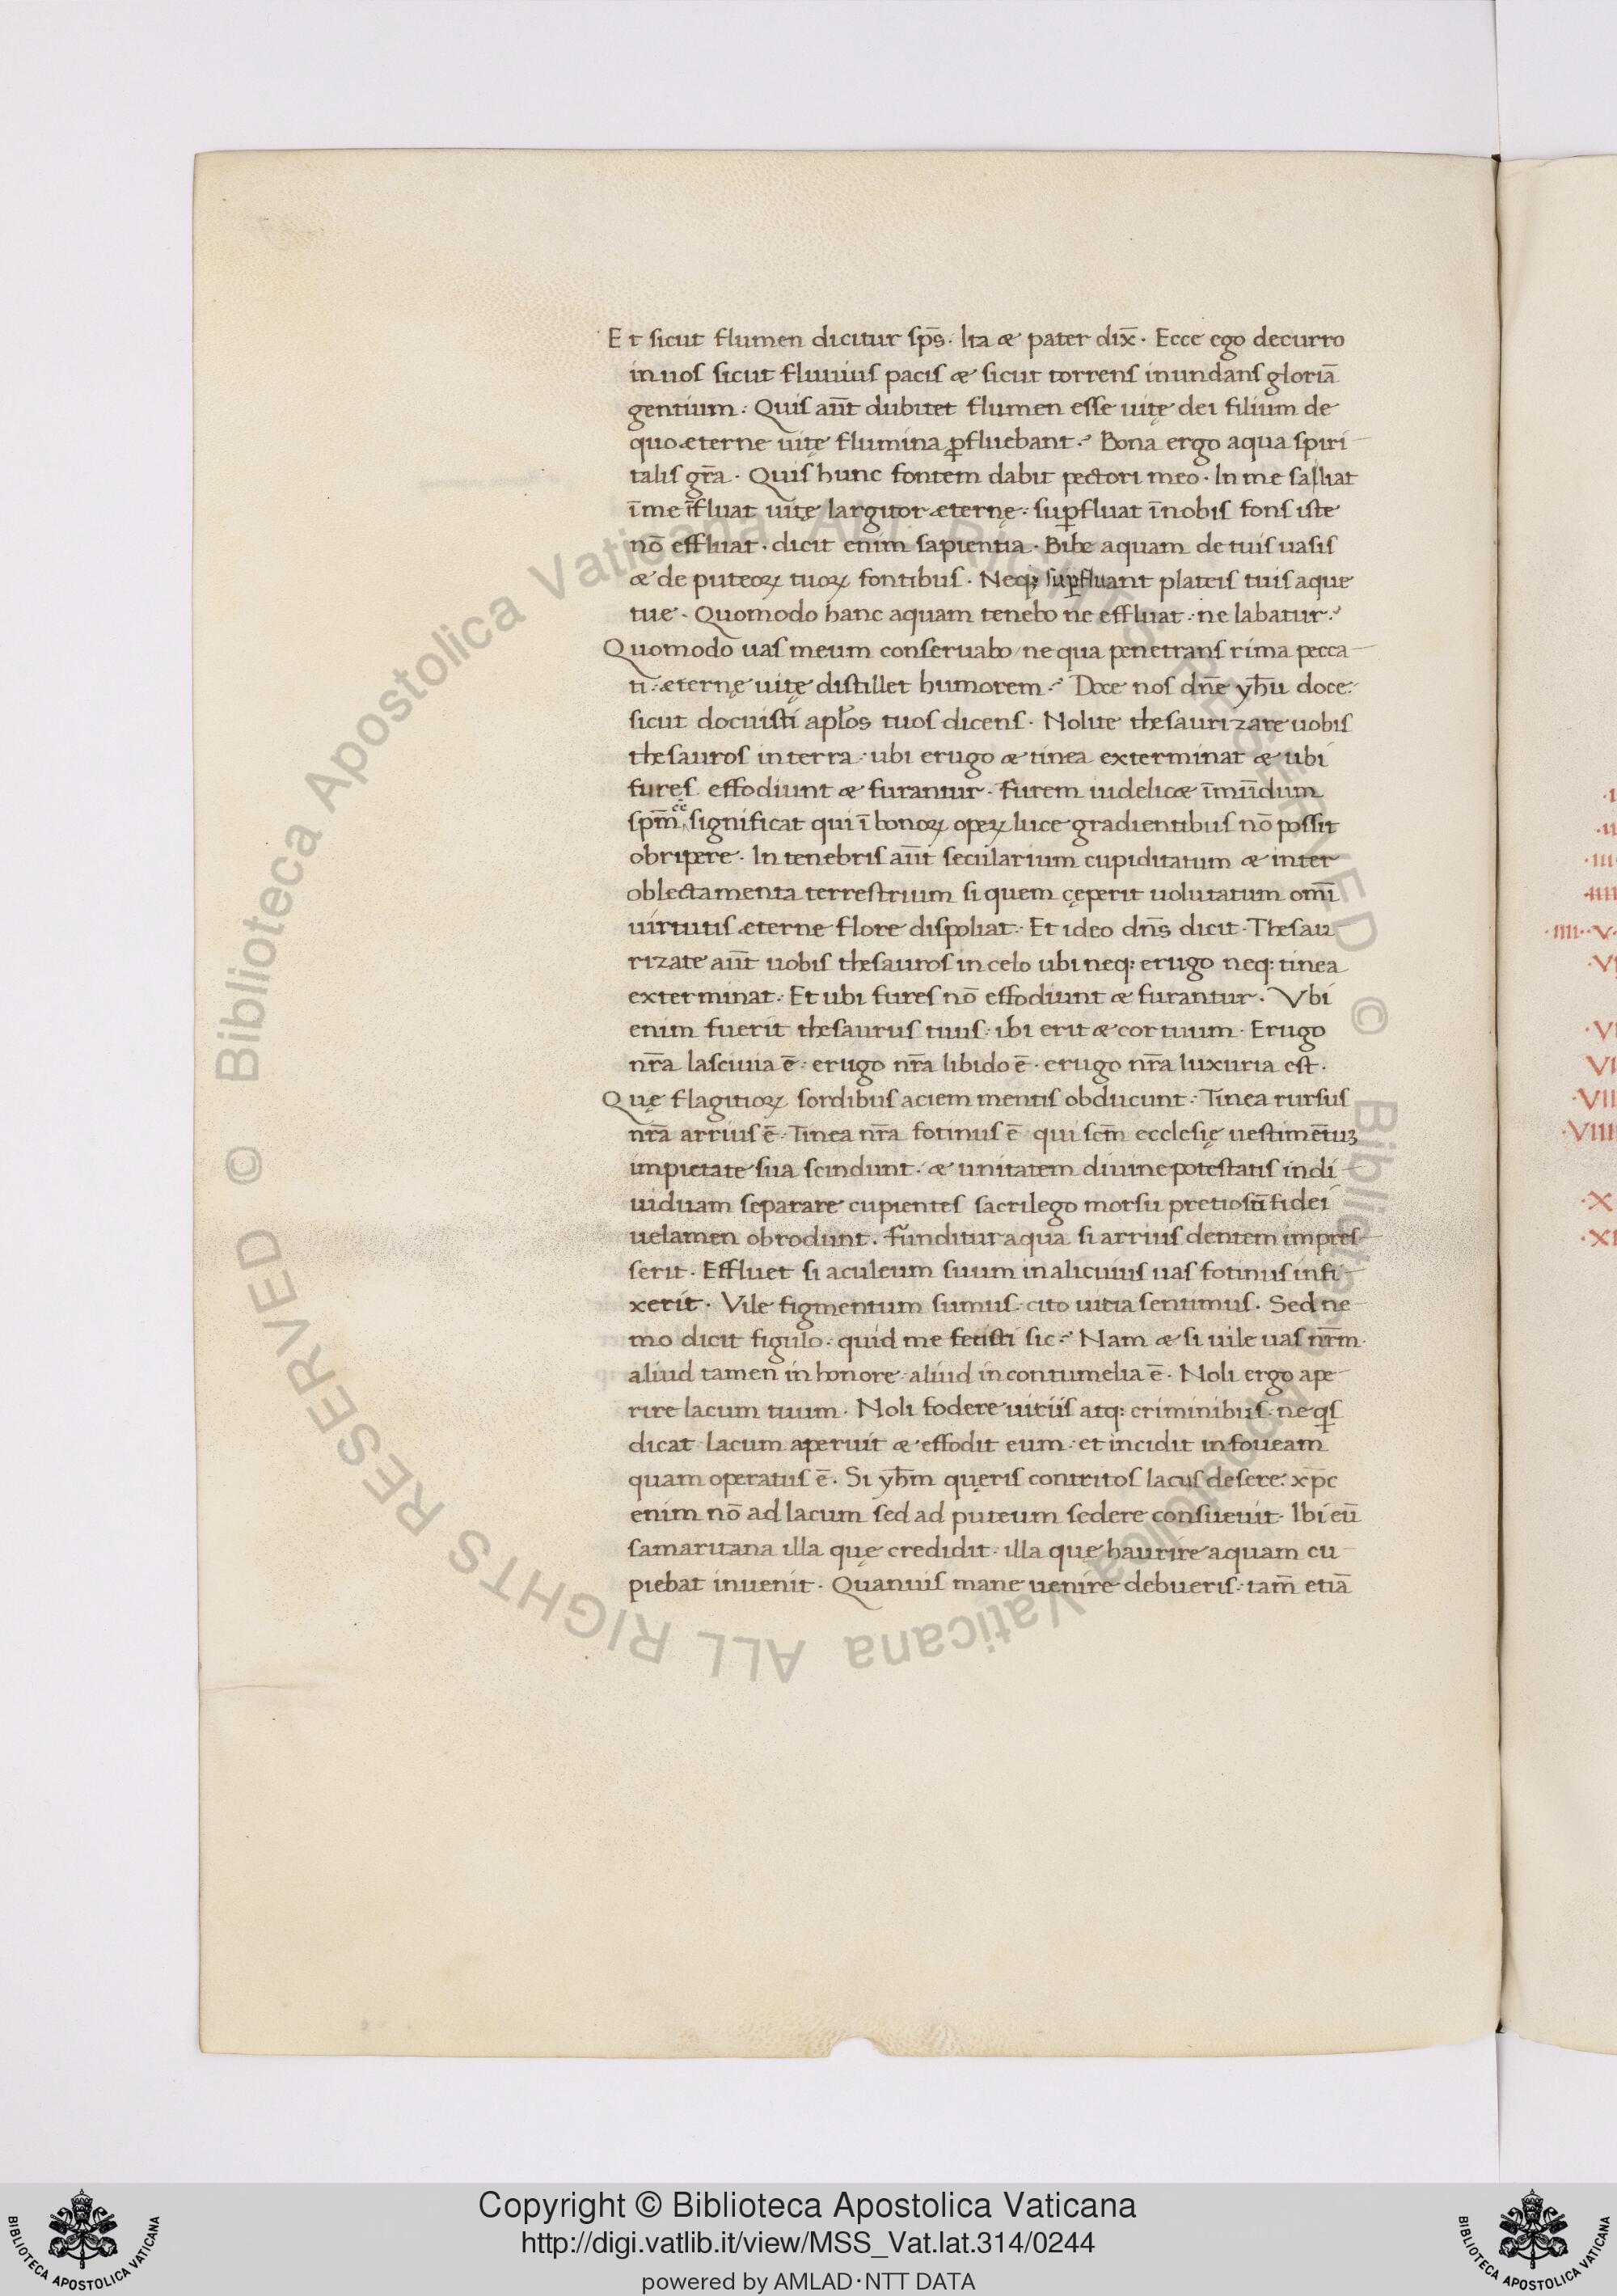 Et sicut flumen dicitur sp̄s. Ita & pater dix̄. Ecce ego decurro
in uos sicut fluuius pacis & sicut torrens inundans gloriā
gentium: Quis aūt dubitet flumen esse uitę dei filium de
quo æterne uitę flumina ꝓfluebant? Bona ergo aqua spiri-
talis gr̄a. Quis hunc fontem dabit pectori meo. In me saliat
ī me īfluat uitę largitor æternę: suꝑfluat ī nobis fons iste
nō effluat. dicit enim sapientia. Bibe aquam de tuis uasis
& de puteoꝝ tuoꝝ fontibus. Neq; suꝑfluant plateis tuis aque
tue. Quomodo hanc aquam tenebo ne effluat: ne labatur?
Quomodo uas meum conseruabo / ne qua penetrans rima pecca-
ti: æternę uitę distillet humorem? Doce nos dn̄e yh̄u doce:
sicut docuisti apl̄os tuos dicens. Nolite thesaurizare uobis
thesauros in terra: ubi erugo & tinea exterminat & ubi
fures effodiunt & furantur. Furem uidelic& īmūdum
sp̄m ēē significat qui ī bonoꝝ opeꝝ luce gradientibus nō possit
obripere. In tenebris aūt secularium cupiditatum & inter
oblectamenta terrestrium si quem cęperit uolutatum omī
uirtutis æterne flore dispoliat. Et ideo dn̄s dicit. Thesau
rizate aūt uobis thesauros in celo ubi neq: erugo neq: tinea
exterminat. Et ubi fures nō effodiunt & furantur. Vbi
enim fuerit thesaurus tuus: ibi erit & cor tuum. Erugo
nr̄a lasciuia ē: erugo nr̄a libido ē. erugo nr̄a luxuria est.
Quę flagitioꝝ sordibus aciem mentis obducunt: Tinea rursus
nr̄a arrius ē. Tinea nr̄a fotinus ē qui scm̄ ecclesię uestimētuꝫ
impietate sua scindunt. & unitatem diuine potestatis indi-
uiduam separare cupientes sacrilego morsu pretiosū fidei
uelamen obrodunt. funditur aqua si arrius dentem impres-
serit. Effluet si aculeum suum in alicuius uas fotinus infi-
xerit. Vile figmentum sumus: cito uitia sentimus. Sed ne
mo dicit figulo. quid me fecisti sic? Nam & si uile uas nr̄m
aliud tamen in honore: aliud in contumelia ē. Noli ergo ape-
rire lacum tuum. Noli fodere uitiis atq: criminibus: ne qs̄
dicat lacum aperuit & effodit eum: et incidit in foueam
quam operatus ē. Si yh̄m queris contritos lacus desere: xp̄c
enim nō ad lacum sed ad puteum sedere consueuit. Ibi eū
samaritana illa quę credidit: illa quę haurire aquam cu-
piebat inuenit. Quanuis mane uenire debueris: tam̄ etiā
·VI
VI
·VII
·VIIII
·X
·XI
Copyright © Biblioteca Apostolica Vaticana
http://digi.vatlib.it/view/MSS_Vat.lat.314/0244
powered by AMLAD·NTT DATA
BIBLIOTECA APOSTOLICA VATICANA
BIBLIOTECA APOSTOLICA VATICANA
© Biblioteca Apostolica Vaticana ALL RIGHTS RESERVED © Biblioteca Apostolica Vaticana ALL RIGHTS RESERVED